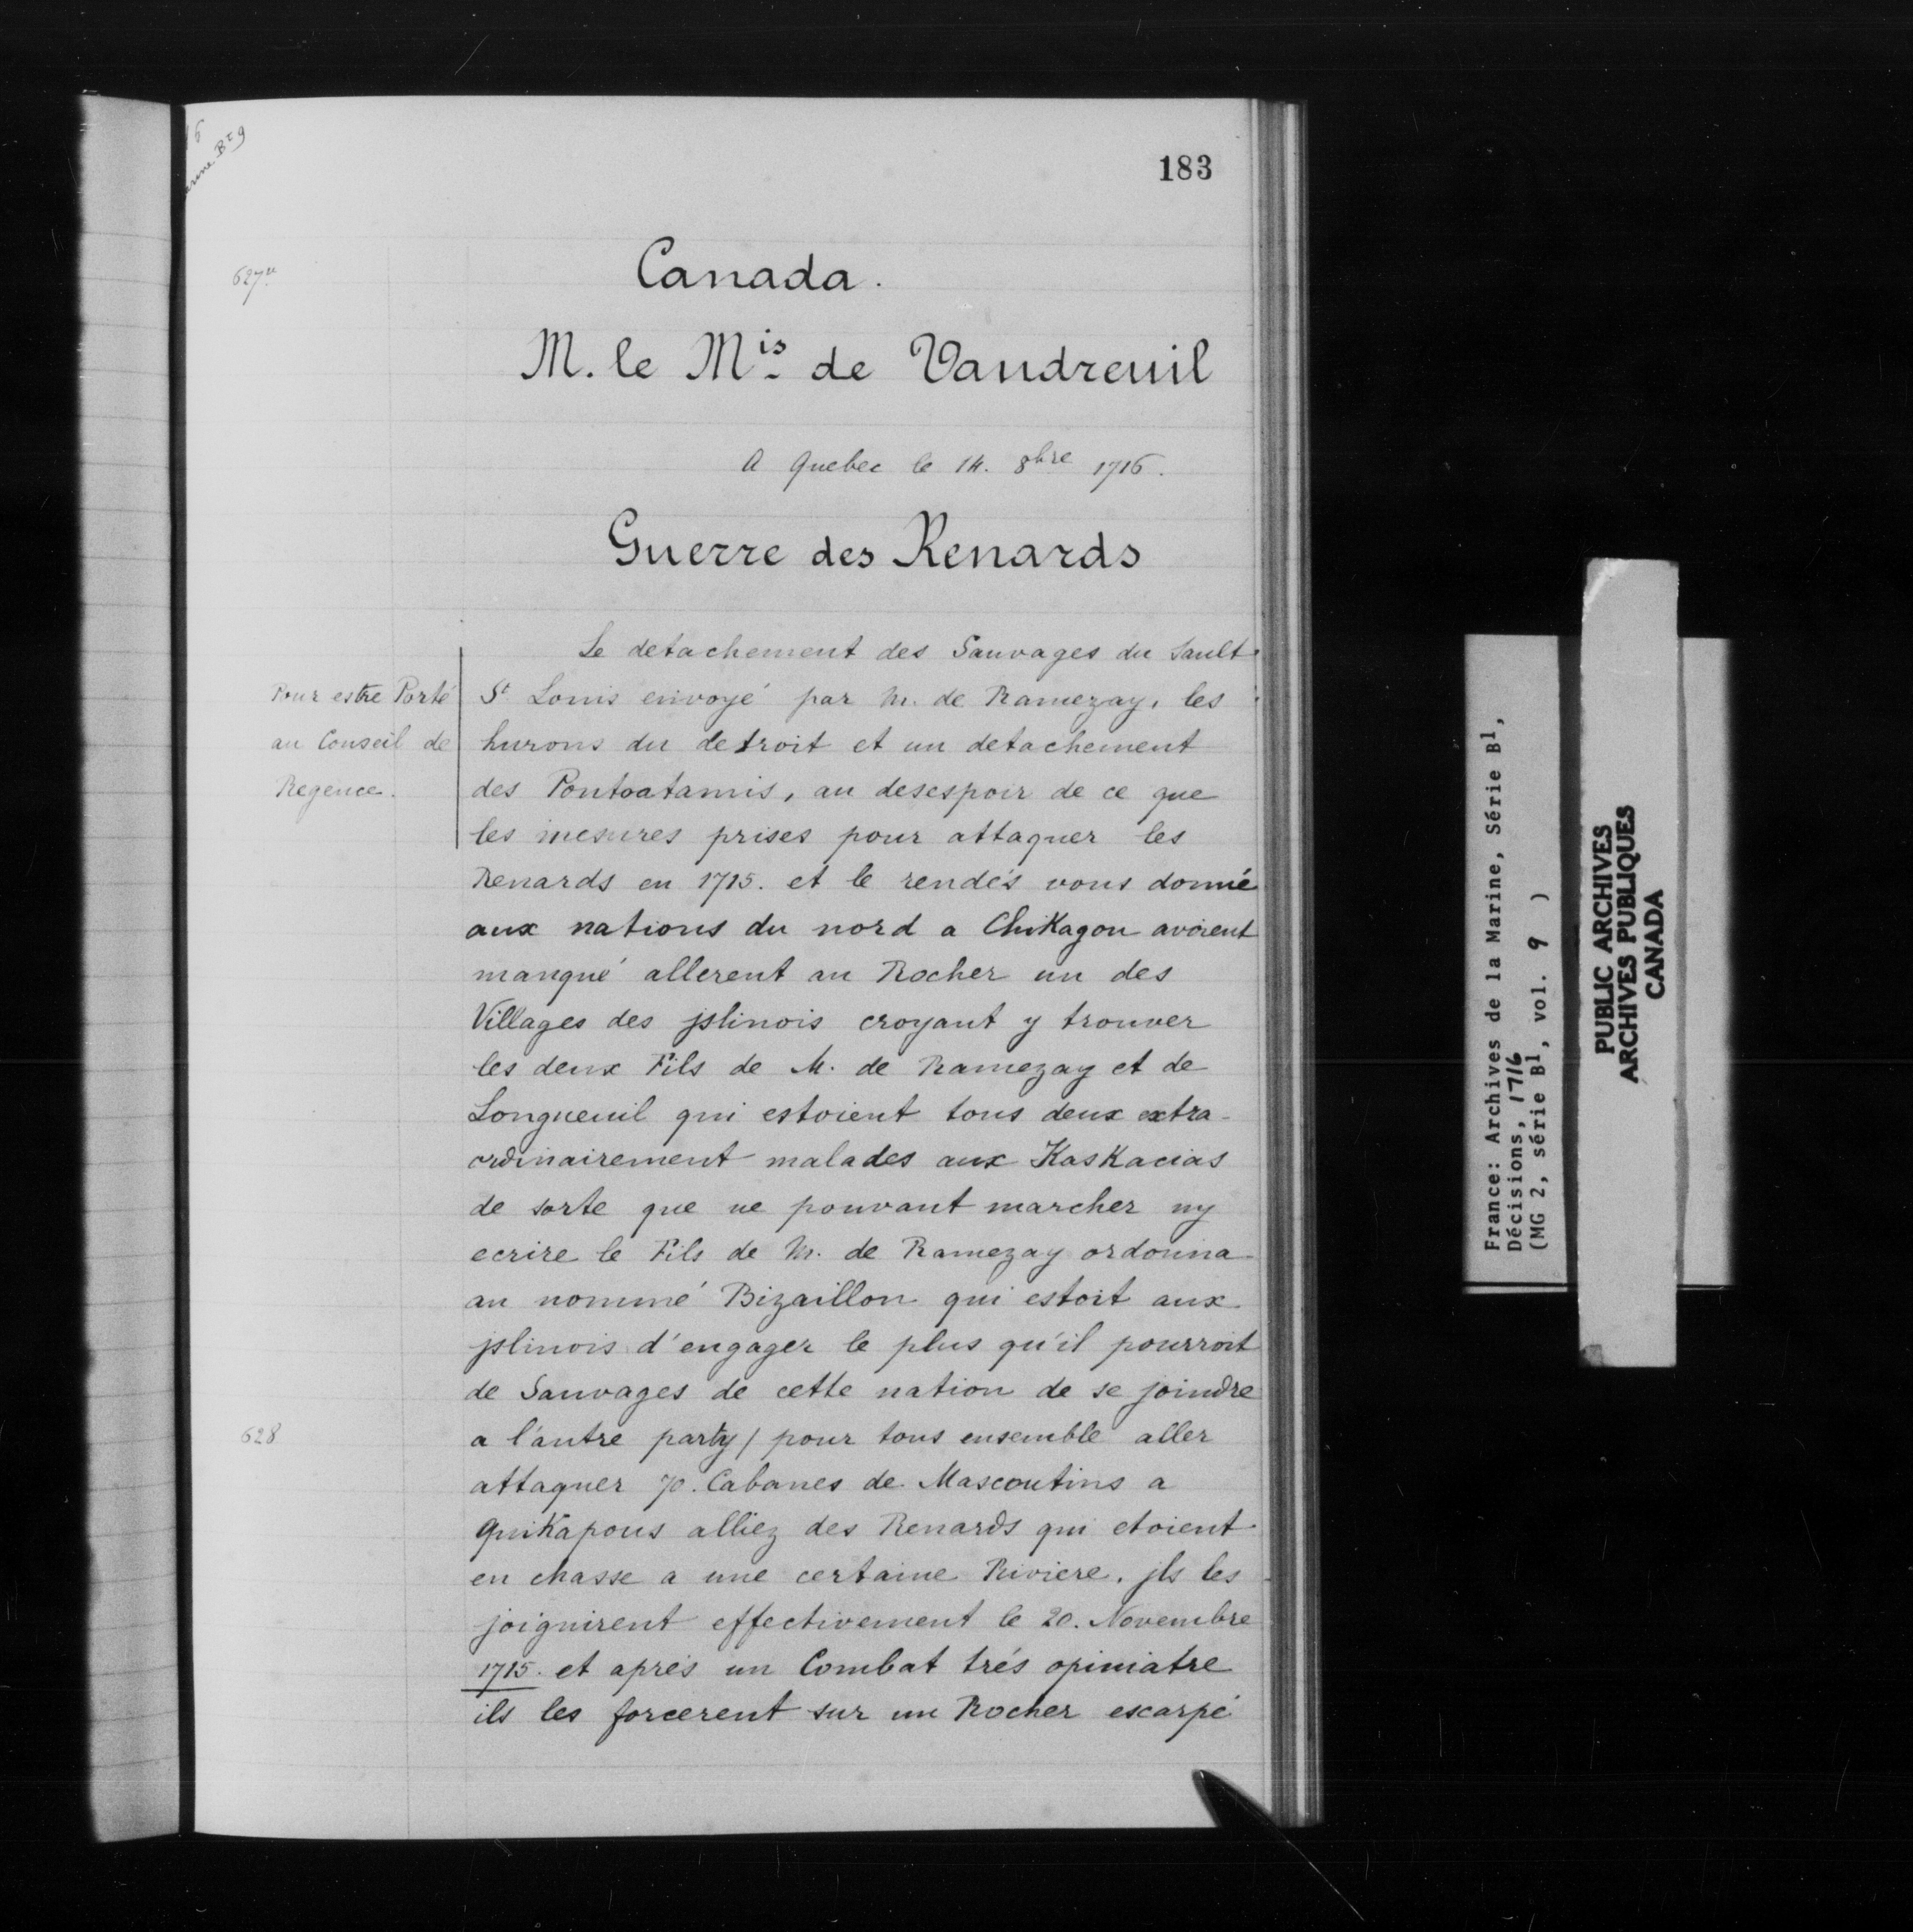 183
627v.
Canada.
M. le Mis de Vaudreuil
A Quebec le 14. 8bre 1716.
Guerre des Renards
Pour estre Porté
au Conseil de
Regence.
Le detachement des Sauvages du Sault
St Louis envoyé par M. de Ramezay, les
hurons du detroit et un detachement
des Poutoatamis, au desespoir de ce que
les mesures prises pour attaquer les
Renards en 1715. et le rendés vous donné
aux nations du nord a Chikagou avoient
manqué allerent au Rocher un des
Villages des jslinois croyant y trouver
les deux Fils de M. de Ramezay et de
Longueuil qui estoient tous deux extra-
ordinairement malades aux Kaskacias
de sorte que ne pouvant marcher ny
ecrire le Fils de M. de Ramezay ordonna
au nommé Bizaillon qui estoit aux
jslinois d'engager le plus qu'il pourroit
de Sauvages de cette nation de se joindre
628
a l'autre party / pour tous ensemble aller
attaquer 70. Cabanes de Mascoutins a
Quikapous alliez des Renards qui etoient
en chasse a une certaine Riviere. jls les
joignirent effectivement le 20. Novembre
1715. et aprés un Combat trés opiniatre
ils les forcerent sur un Rocher escarpé
France: Archives de la Marine, Série B1,
Décisions, 1716
(MG 2, série B1, vol. 9 )
PUBLIC ARCHIVES
ARCHIVES PUBLIQUES
CANADA